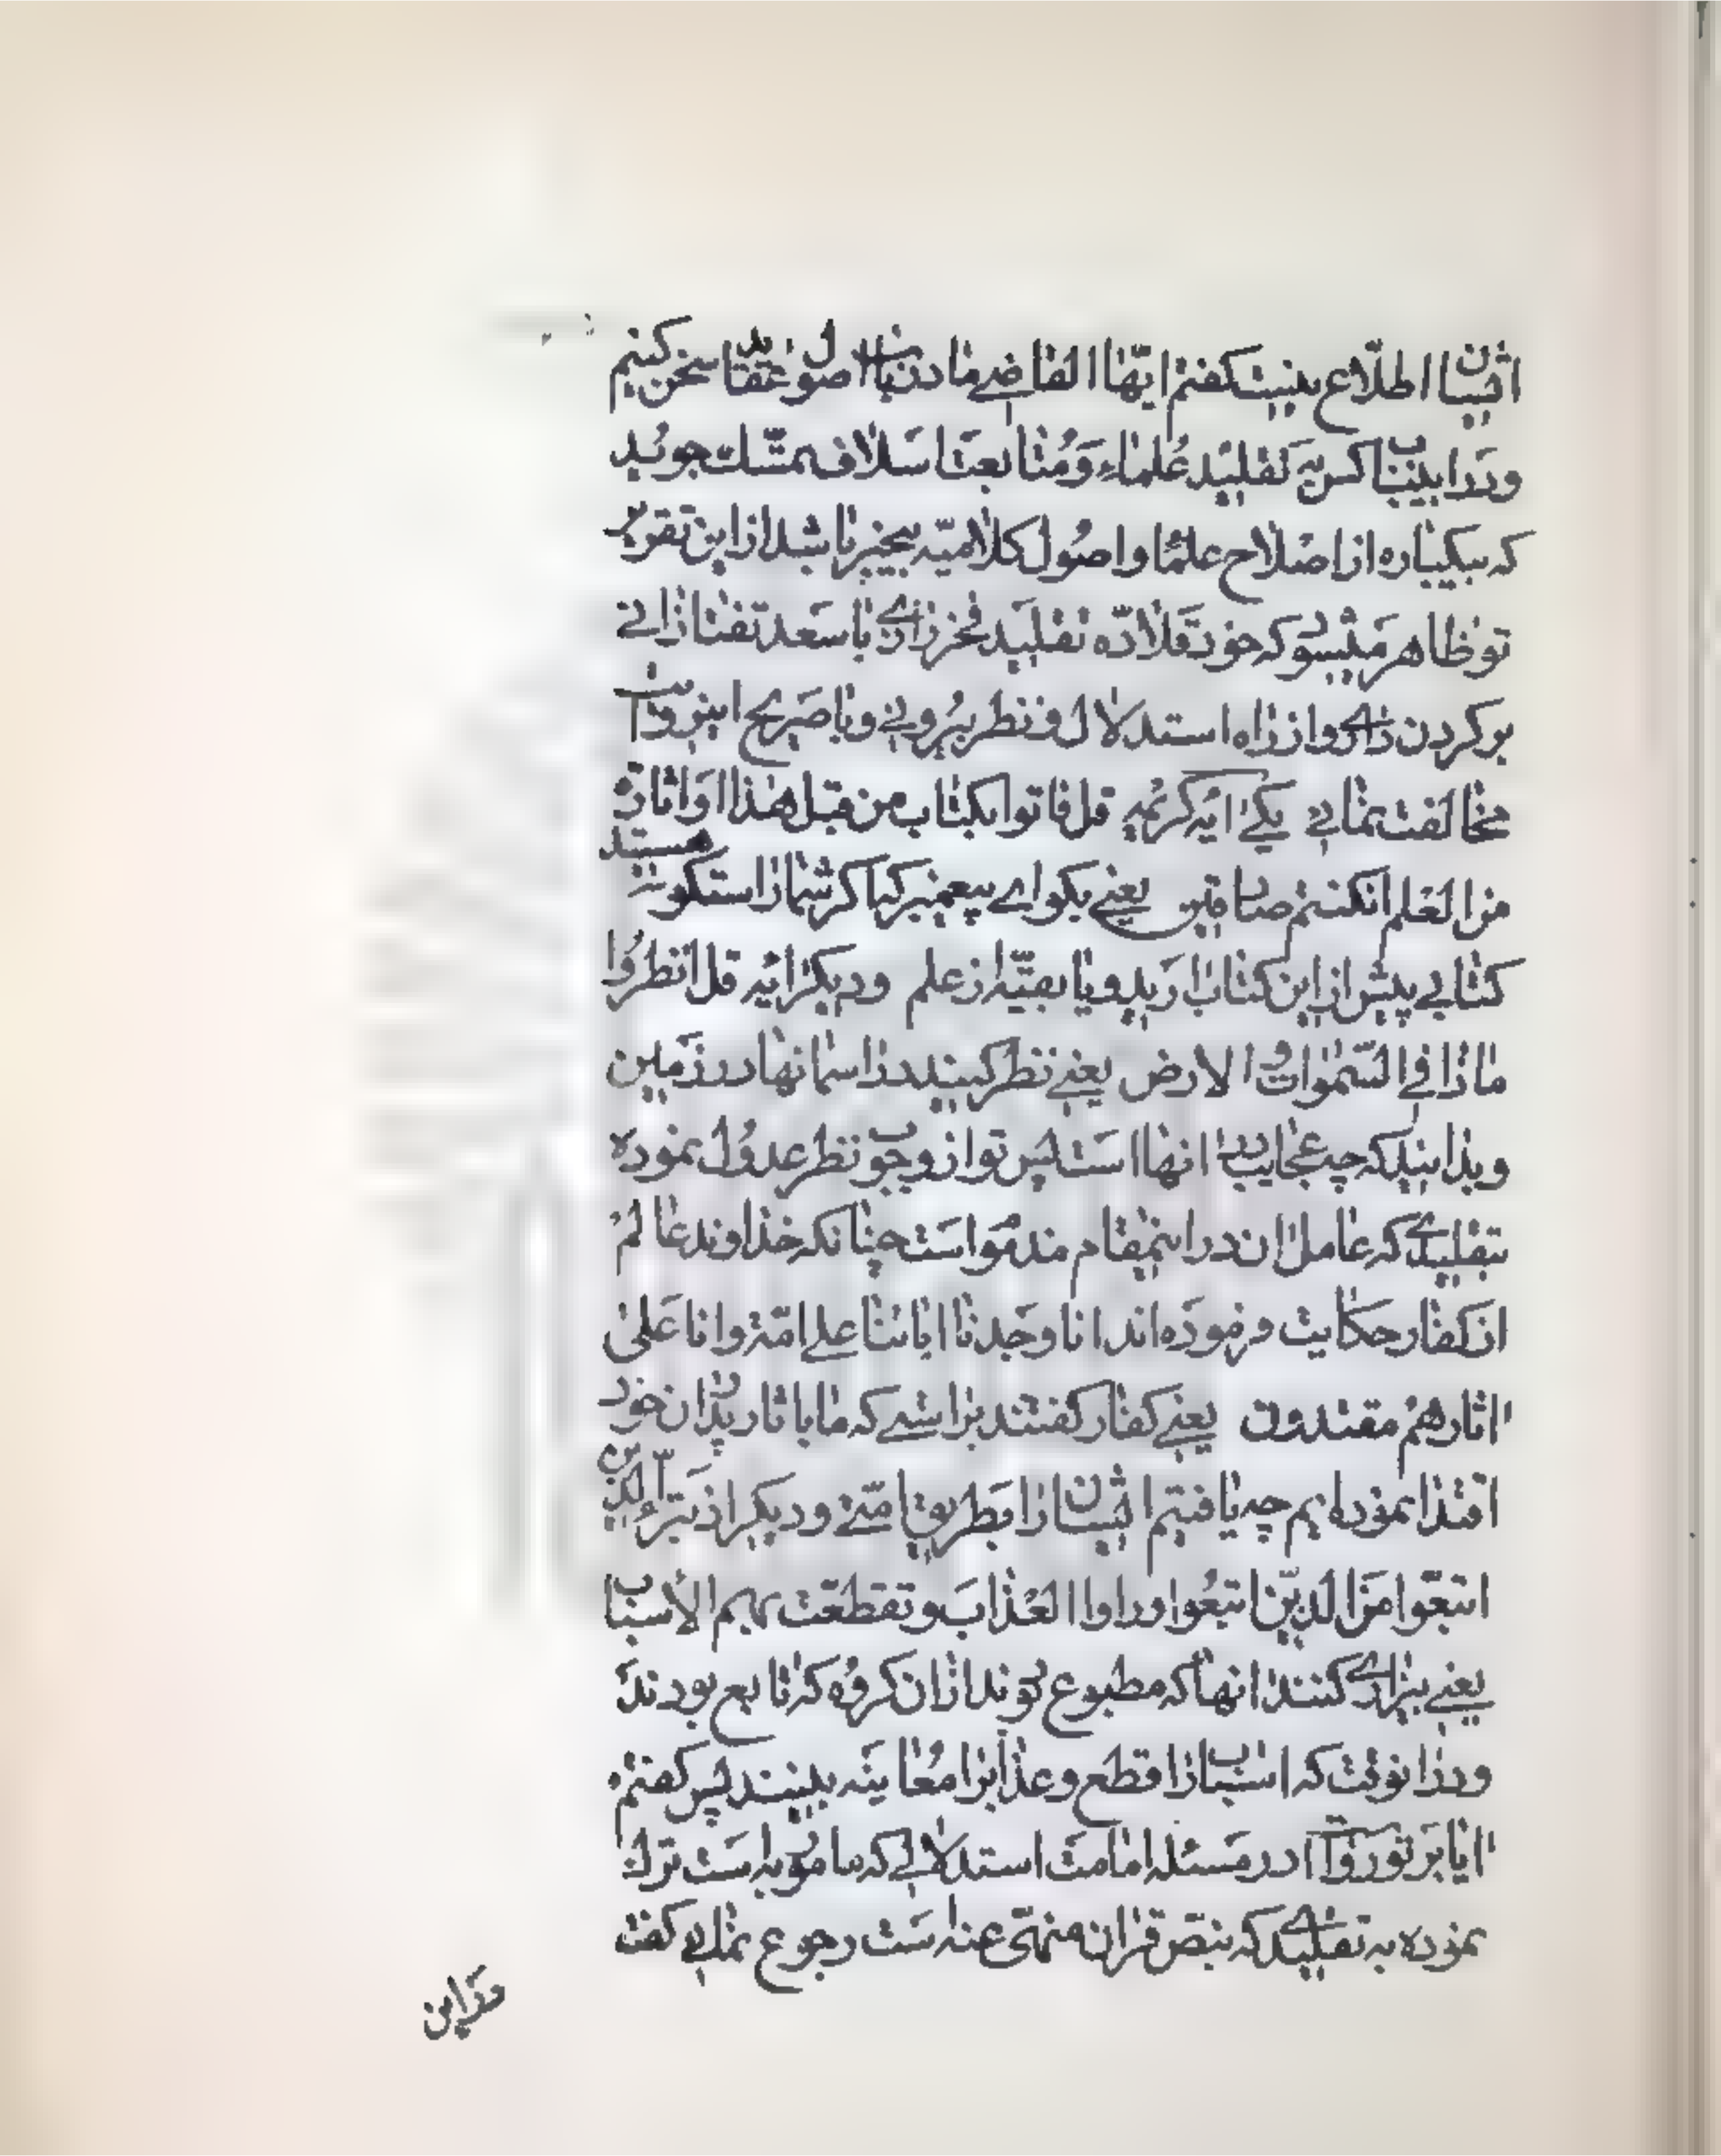 ایشان اطلاع نیست گفتم ایها القاضی ما در باب اصول عقاید سخن کنیم
و در این باب کس به تقلید علماء و متابعت اسلاف تمسک جوید
که بیکباره از اصلاح علما و اصول کلامیه بیخبر باشد از این تقریر
تو ظاهر میشود که خود قلاده تقلید فخر رازی یا سعد تفتازانی
بر گردن داری و از راه استدلال و نظر بیرونی و با صریح این دو آیت
مخالفت نمائی یکی آیه کریمه قل فاتوا بکتاب من قبل هذا او اثارة
من العلم ان کنتم صادقین یعنی بگو ای پیغمبر که اگر شما راستگو هستید
کتابی پیش از این کتاب آرید و یا بقیه از علم و دیگر آیه قل انظروا
ماذا فی السموات و الارض یعنی نظر کنید در آسمانها و در زمین
و بدانید که چه عجایب در آنها است پس تو از وجوب نظر عدول نموده
بتقلیدی که عامل آن در اینمقام مذموم است چنانکه خداوند عالم
از کفار حکایت فرموده اند انا وجدنا ابائنا علی امة و انا علی
اثارهم مقتدون یعنی کفار گفتند براستی که ما باثار پدران خود
اقتدا نموده ایم چه یافتیم ایشان را بطریق امتی و دیگر اذ تبرء الذین
اتبعوا من الذین اتبعوا وراوا العذاب و تقطعت بهم الاسباب
یعنی بیزاری کنند آنها که مطبوع بوند از آن گروه که تابع بودند
و در انوقت که اسباب را قطع و عذاب را معاینه ببینند پس گفتم
ایا بر تو روا در مسئله امامت استدلالی که مامور به است ترک
نموده به تقلیدی که بنص قران منهی عنه است رجوع نمائی گفت
در این